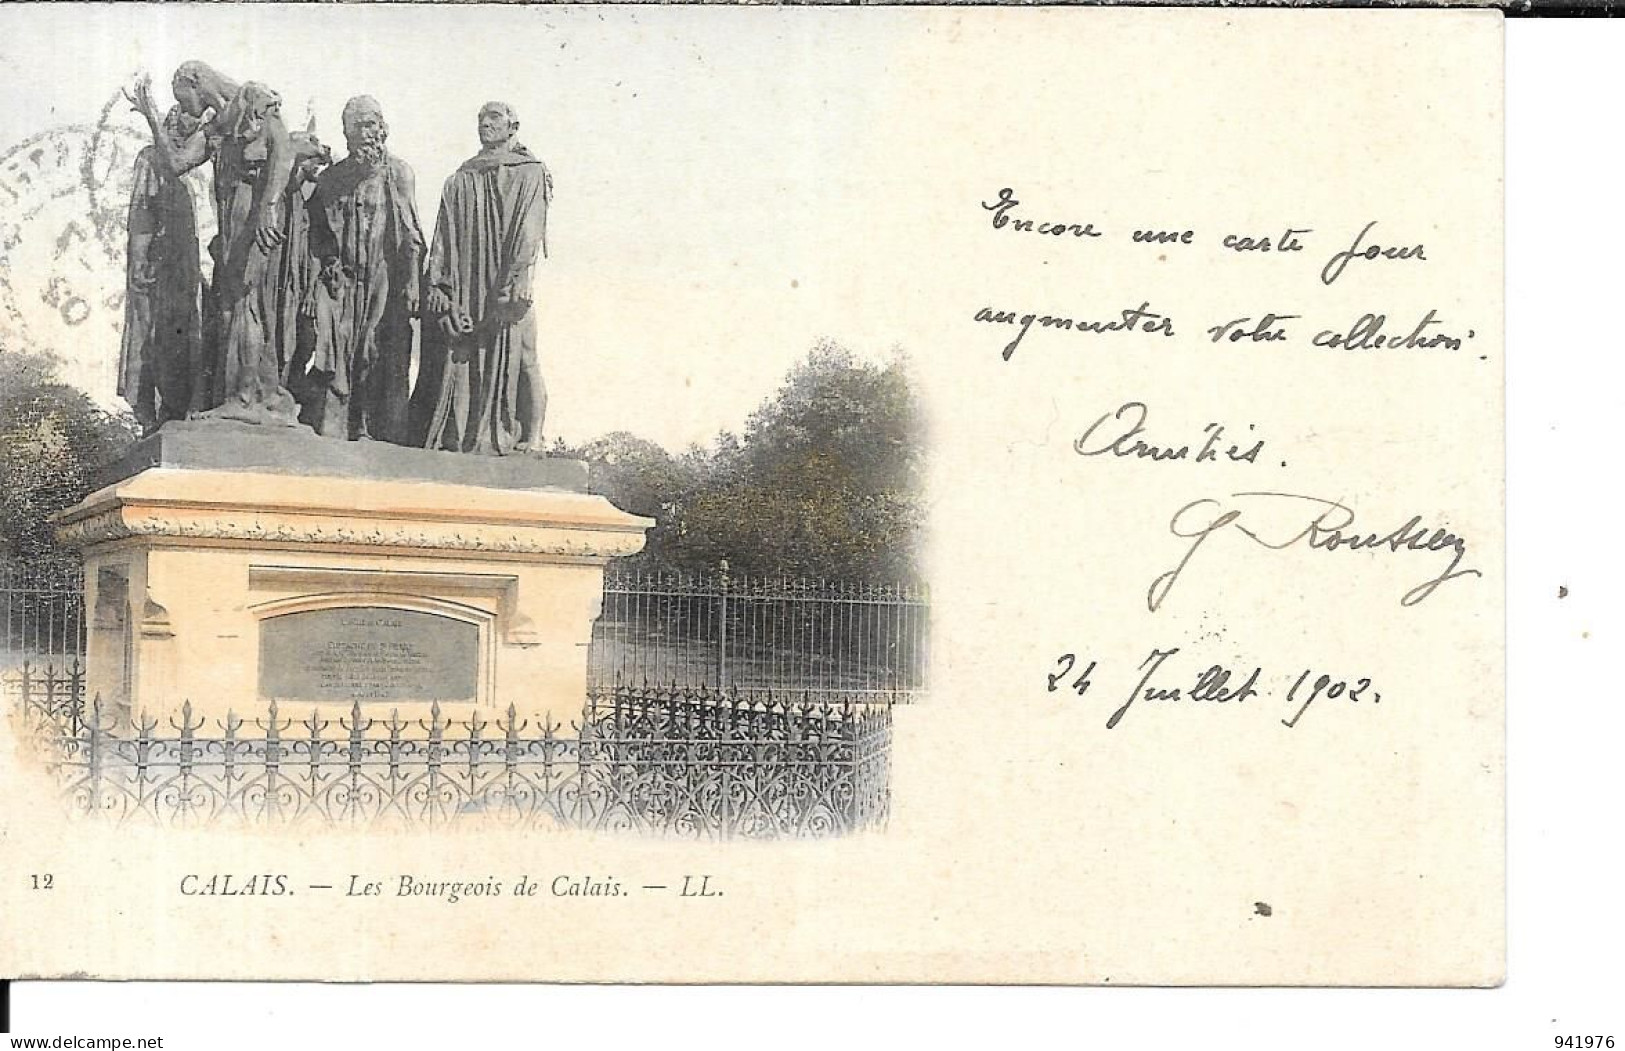 Encore une carte pour
augmenter votre collection.
Amitiés.
G Roussey
24 Juillet 1902.
CALAIS
12
CALAIS. — Les Bourgeois de Calais. — LL.
delcampe.net
941976